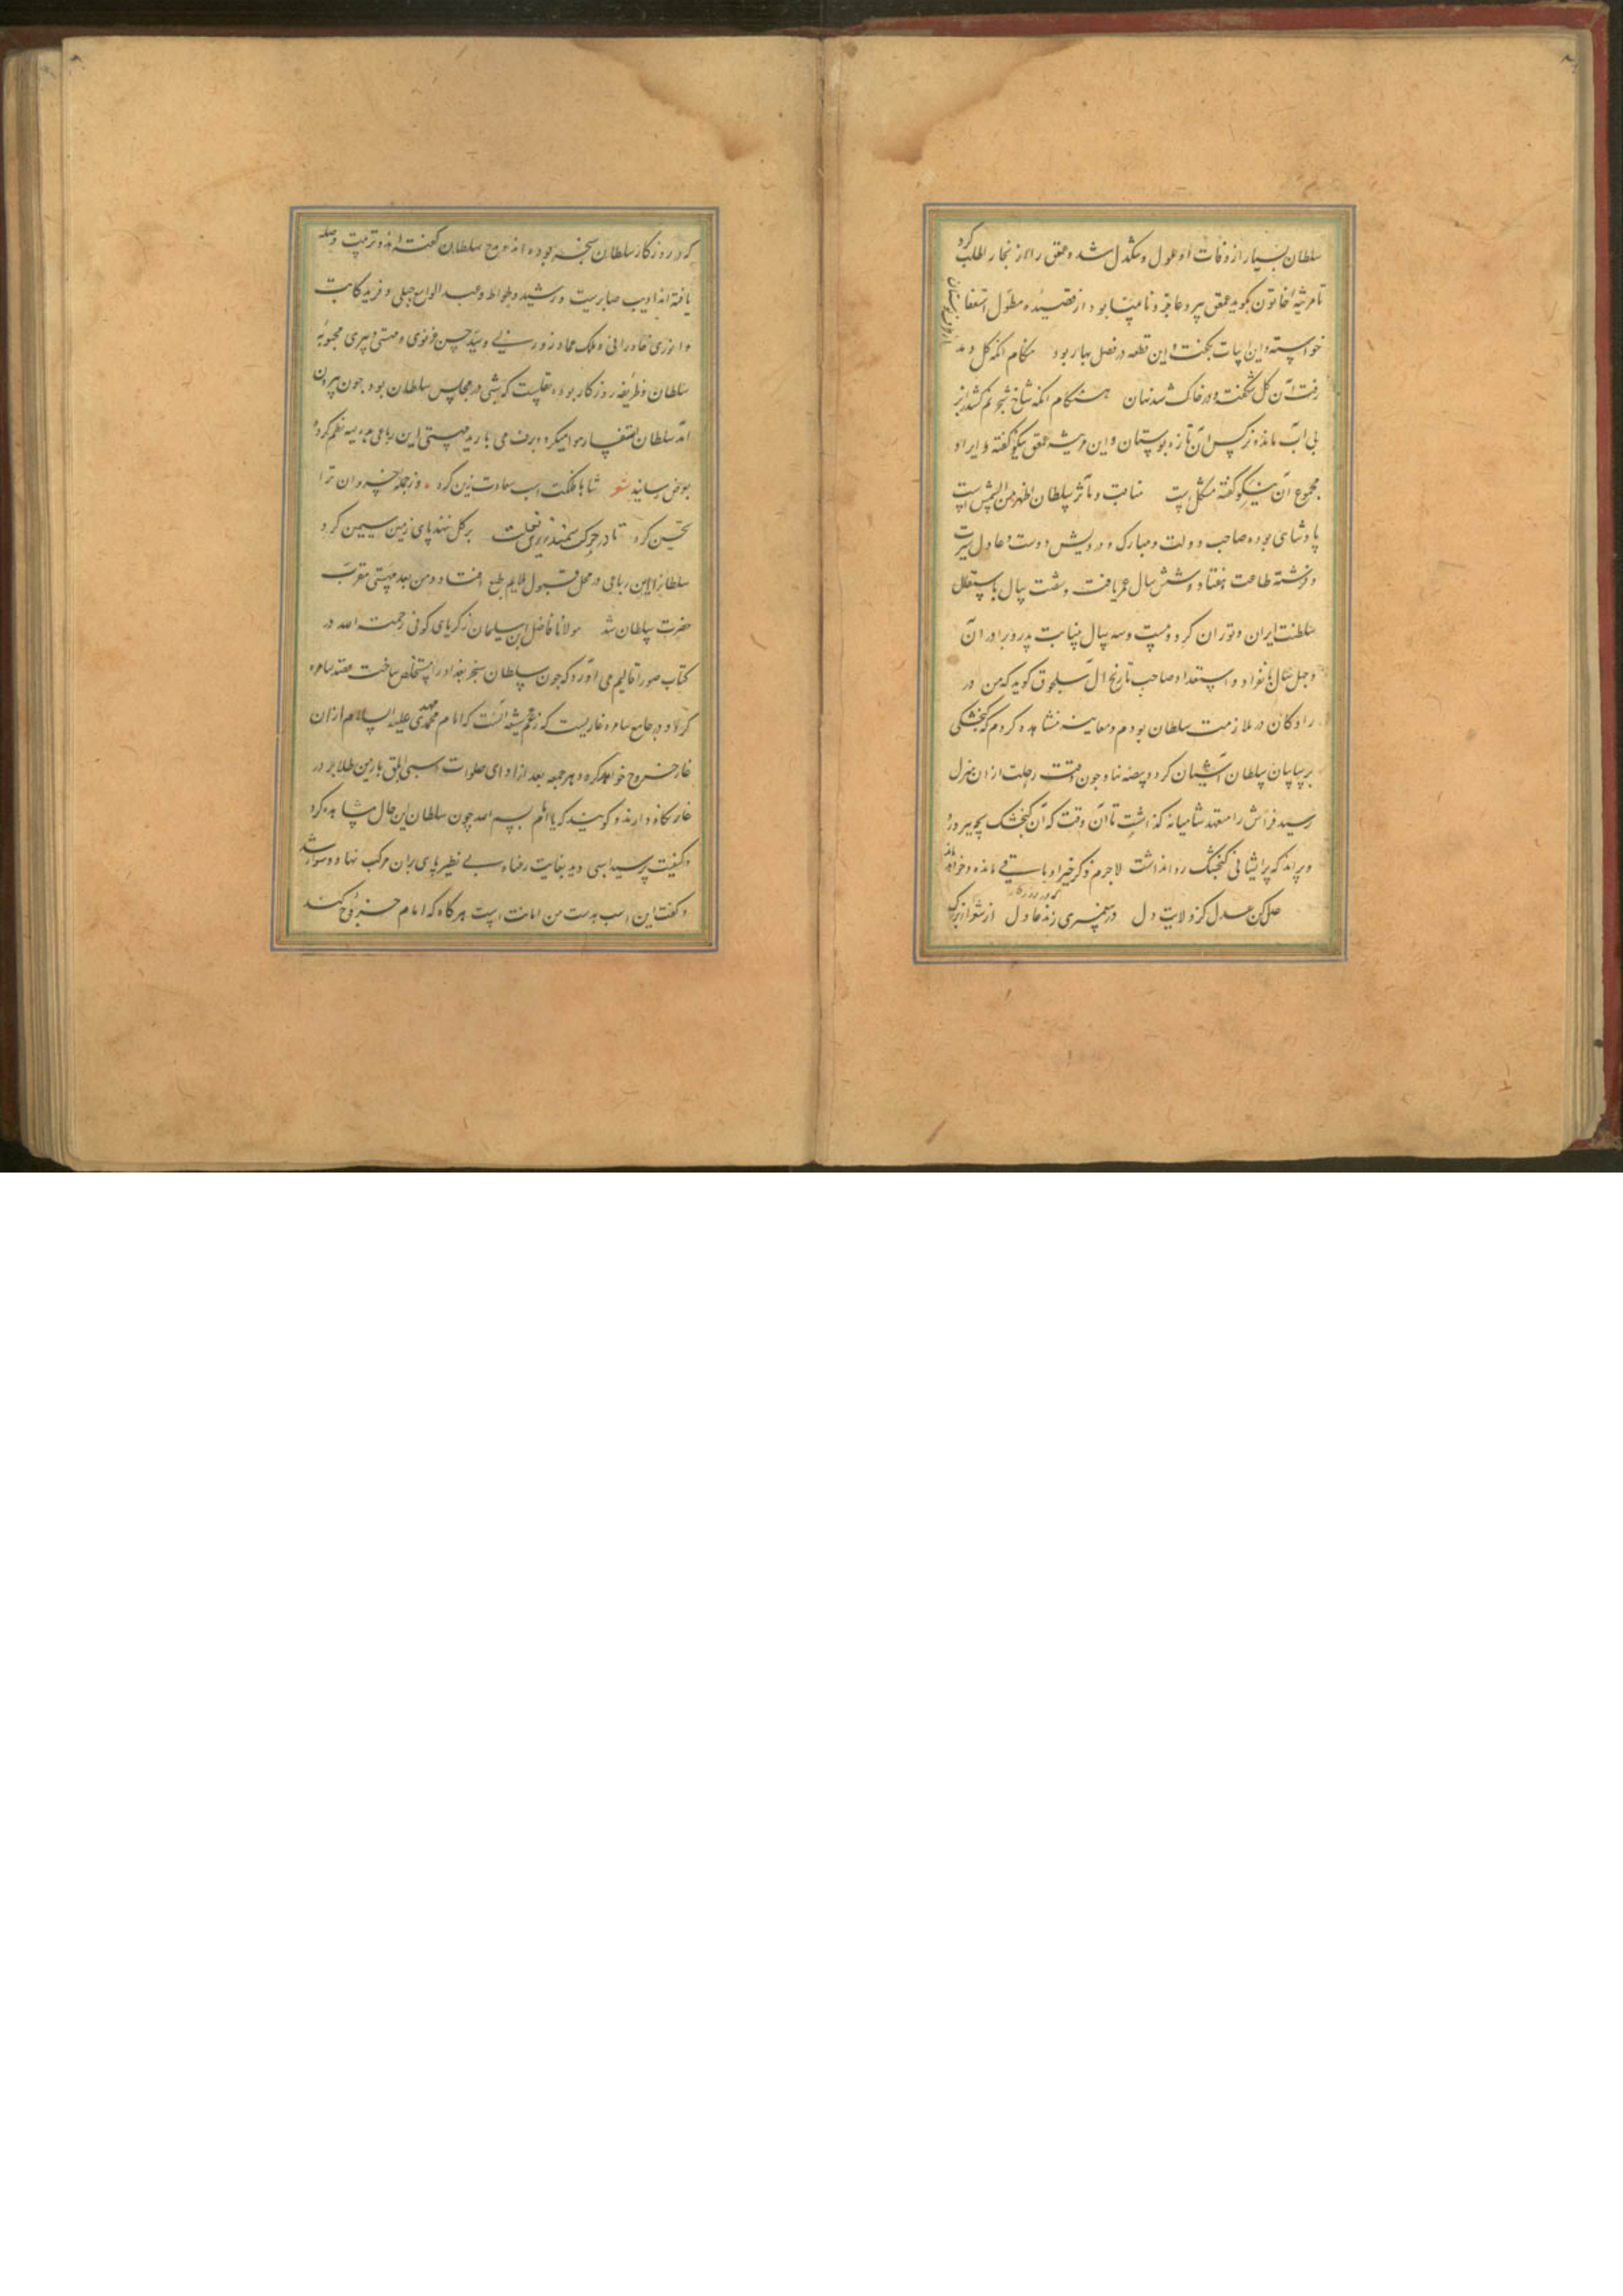 سلطان بسیار از وفات او ملول و تنگدل شد و عمعق را از بخارا طلب کرد
تا مرثیهٔ خاتون بگوید عمعق پیر و عاجز و نابینا بود از قصیدهٔ مطول استعفا
خواسته و این ابیات بگفت و این قطعه در فصل بهار بود هنگام آنکه گل دمد
از طرف بوستان
رفت آن گل شکفته و در خاک شد نهان هنگام آنکه شاخ شجر نم کشد ز ابر
بی آب ماند نرگس آن تازه بوستان و این مرثیه عمعق نیکو گفته و ایراد
مجموع آن نیکو گفته مشکل است مناقب و مآثر سلطان اظهر من الشمس است
پادشاهی بوده صاحب دولت و مبارک و درویش دوست و عادل سیرت
و فرشته طاعت هفتاد و شش سال عمر یافت و شصت سال باستقلال
سلطنت ایران و توران کرد و بیست و سه سال بنیابت پدر و برادر آن
و چهل سال بانفراد و استعداد صاحب تاریخ آل سلجوق گوید که من در
رادکان در ملازمت سلطان بودم و معاینه مشاهده کردم که گنجشکی
بر سایبان سلطان آشیان کرد و بیضه نهاد چون وقت رحلت از آن منزل
رسید فراش را متعهد شامیانه گذاشت تا آن وقت که آن گنجشک بچه پرورد
و پراند که پریشانی گنجشک روا نداشت لاجرم ذکر خیر او باقی مانده و خواهد ماند
علی کن عدل کز ولایت دل در پیغمبری زند عادل از شعرا بزرگ
که در روزگار
که در روزگار سلطان سنجر بوده اند و مدح سلطان گفته اند و تربیت و صله
یافته اند ادیب صابرست و رشید وطواط و عبد الواسع جبلی و فرید کاتب
و انوری خاورانی و ملک عماد زوزنی و سید حسن غزنوی و مهستی دبیری محبوبهٔ
سلطان و ظریفه روزگار بوده نقلیست که شبی در مجلس سلطان بود چون بیرون
آمد سلطان استفسار هوا میکرد و برف می بارید مهستی این رباعی بدیهه نظم کرد و
بعرض رسانید شعر شاها فلکت اسب سعادت زین کرد وز جمله خسروان ترا
تحسین کرد تا در حرکت سمند زرین نعلت بر گل ننهد پای زمین سیمین کرد
سلطانرا این رباعی در محل قبول ملایم طبع افتاد و من بعد مهستی مقرب
حضرت سلطان شد مولانا فاضل ابن سلیمان زکریای کوفی رحمت الله در
کتاب صور اقالیم می آورد که چون سلطان سنجر بغداد را مستخلص ساخت قصد سامره
کرد و در جامع سامره غاریست که زعم شیعه آنست که امام محمد مهدی علیه السلام از آن
غار خروج خواهد کرد و هر جمعه بعد از ادای صلوات اسبی ابلق با زین طلا بر در
غار نگاه دارند و گویند که یا امام بسم الله چون سلطان این حال مشاهده کرد
و کیفیت پرسید اسبی دید بغایت رعنا و بی نظیر پای بران مرکب نهاد و سوار شد
و گفت این اسب بدست من امانت است هرگاه که امام خروج کند